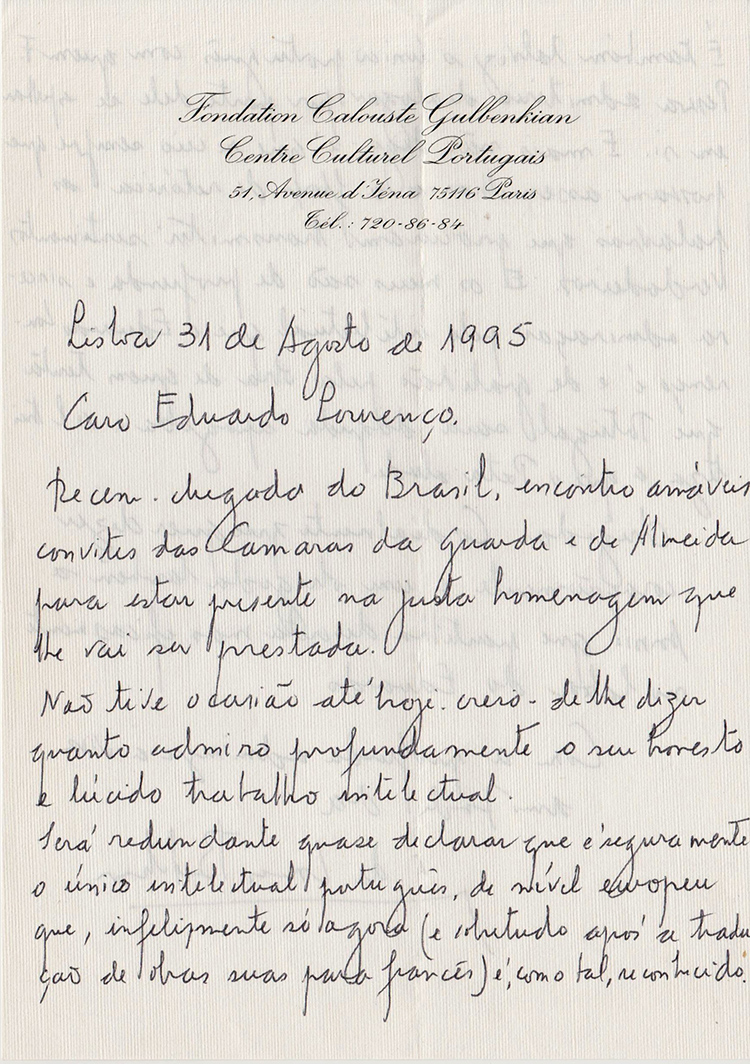 Fondation Calouste Gulbenkian
Centre Culturel Portugais
51, Avenue d'Iéna 75116 Paris
Tél.: 720-86-84
Lisboa 31 de Agosto de 1995
Caro Eduardo Lourenço.
Recem-chegado do Brasil, encontro amáveis
convites das Camaras da Guarda e de Almeida
para estar presente na justa homenagem que
lhe vai ser prestada.
Não tive ocasião até hoje - creio - de lhe dizer
quanto admiro profundamente o seu honesto
e lúcido trabalho intelectual.
Será redundante quase declarar que é seguramente
o único intelectual português, de nível europeu
que, infelizmente só agora (e sobretudo após a tradu
ção de obras suas para francês) é, como tal, reconhecido.